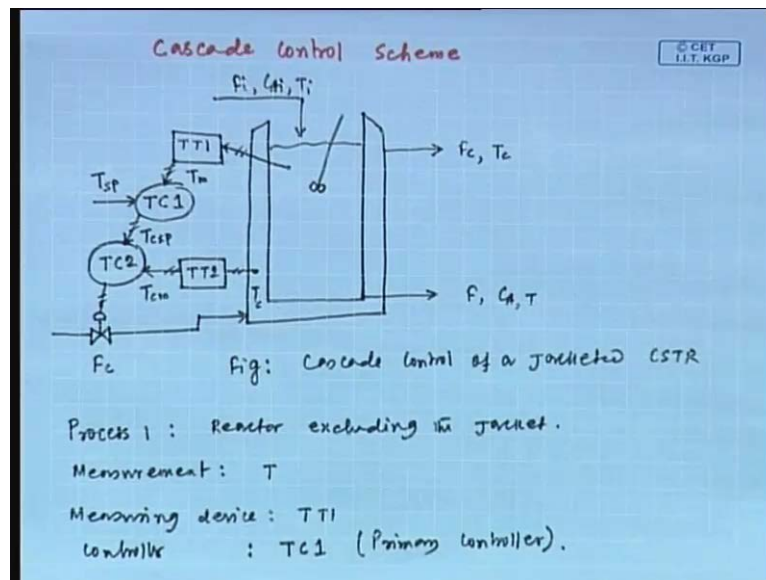 Cascade Control Scheme
© CET
I.I.T. KGP
Fi, CAi, Ti
TT1
Fc, Tc
Tm
Tsp
TC1
Tcsp
TC2
TT2
Tc
Tcm
F, CA, T
Fc
Fig: Cascade Control of a Jacketed CSTR
Process 1 : Reactor excluding the Jacket.
Measurement : T
Measuring device : TT1
Controller : TC1 (Primary Controller).